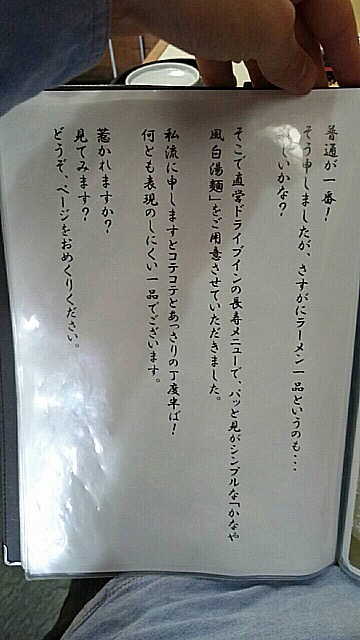 普通が一番！
そう申しましたが、さすがにラーメン一品というのも・・・
しいかな？
そこで直営ドライブインの長寿メニューで、パッと見がシンプルな「かなや
風白湯麺」をご用意させていただきました。
私流に申しますとコテコテとあっさりの丁度半ば！
何とも表現のしにくい一品でございます。
惹かれますか？
見てみます？
どうぞ、ページをおめくりください。